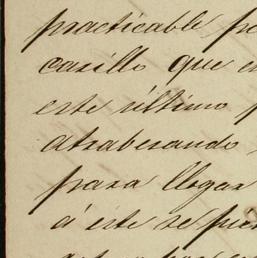 practicable p
casillo que e
este último p
atrabesando
para llegar
á este se pie